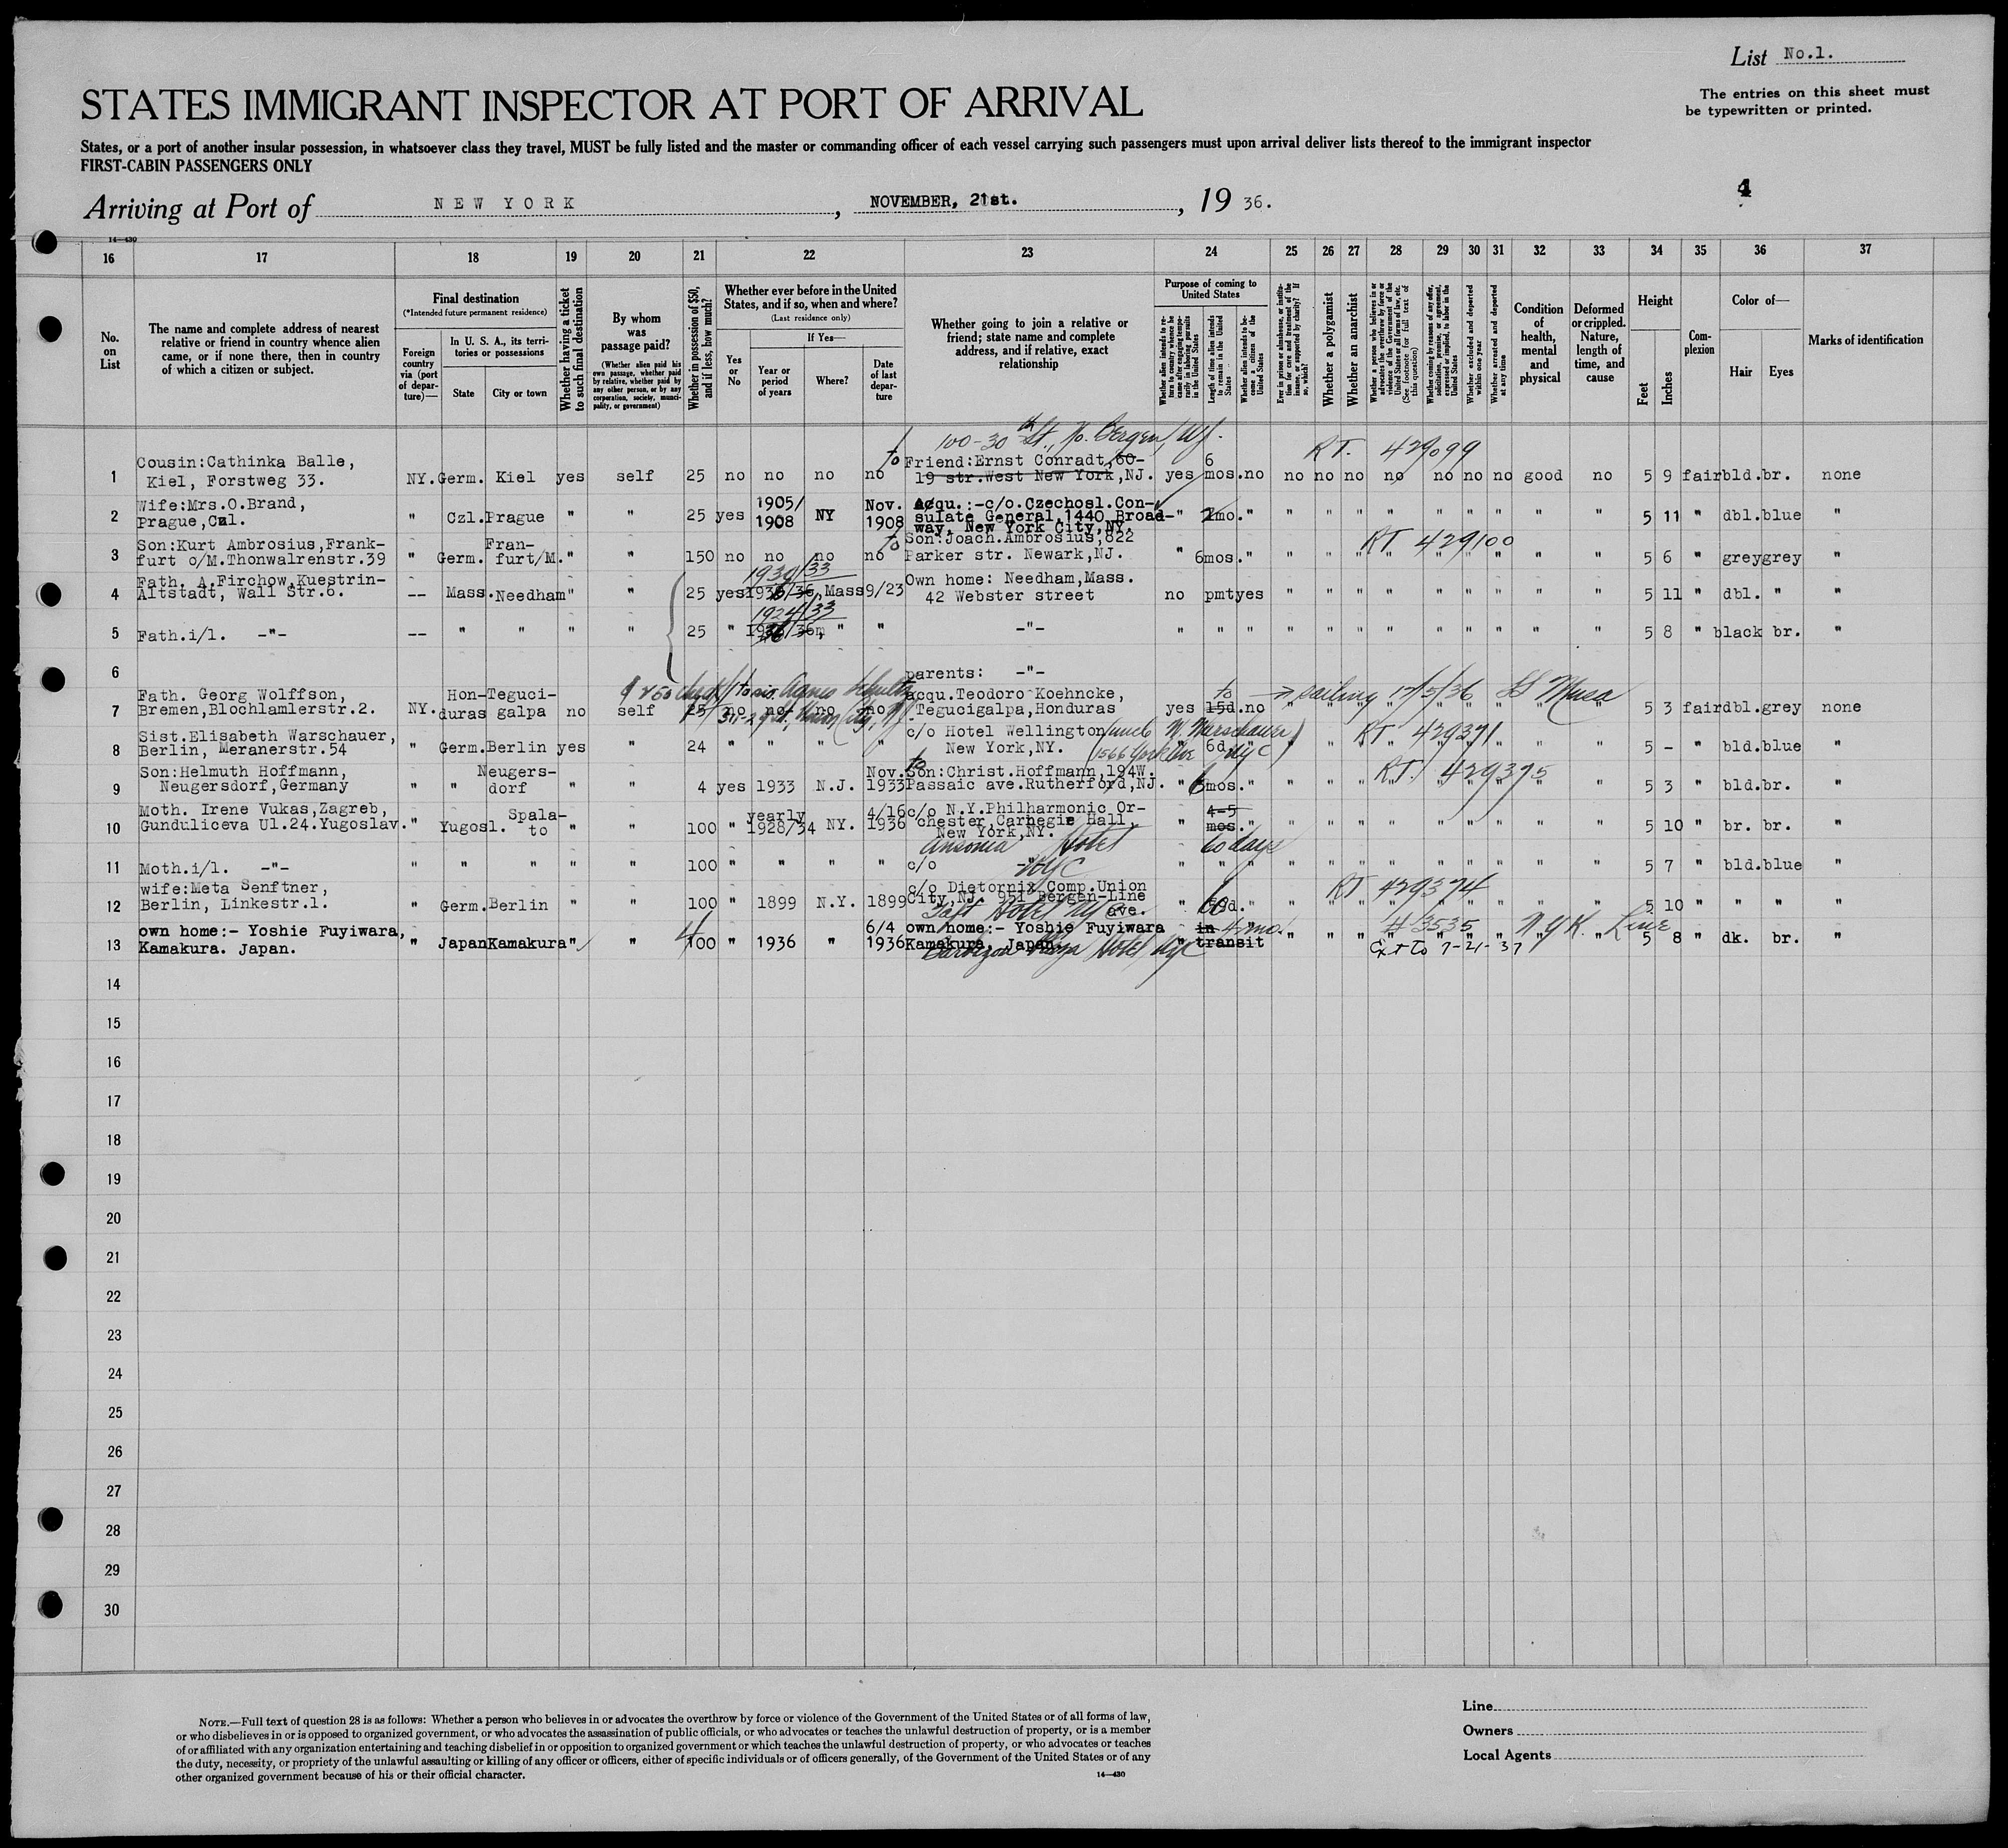 List No.1.
The entries on this sheet must
be typewritten or printed.
STATES IMMIGRANT INSPECTOR AT PORT OF ARRIVAL
States, or a port of another insular possession, in whatsoever class they travel, MUST be fully listed and the master or commanding officer of each vessel carrying such passengers must upon arrival deliver lists thereof to the immigrant inspector
FIRST-CABIN PASSENGERS ONLY
Arriving at Port of NEW YORK, NOVEMBER, 21st., 1936.
14—430
16 17 18 19 20 21 22 23 24 25 26 27 28 29 30 31 32 33 34 35 36 37
No. on List
The name and complete address of nearest
relative or friend in country whence alien
came, or if none there, then in country
of which a citizen or subject.
Final destination
(*Intended future permanent residence)
Foreign country via (port of departure)—
In U. S. A., its territories or possessions
State City or town
Whether having a ticket to such final destination
By whom was passage paid?
(Whether alien paid his own passage, whether paid by relative, whether paid by any other person, or by any corporation, society, municipality, or government)
Whether in possession of $50, and if less, how much?
Whether ever before in the United States, and if so, when and where?
(Last residence only)
Yes or No
If Yes—
Year or period of years
Where?
Date of last departure
Whether going to join a relative or
friend; state name and complete
address, and if relative, exact
relationship
Purpose of coming to United States
Whether alien intends to return to country whence he came after engaging temporarily in laboring pursuits in the United States
Length of time alien intends to remain in the United States
Whether alien intends to become a citizen of the United States
Ever in prison or almshouse, or institution for care and treatment of the insane, or supported by charity? If so, which?
Whether a polygamist
Whether an anarchist
Whether a person who believes in or advocates the overthrow by force or violence of the Government of the United States or all forms of law, etc. (See footnote for full text of this question)
Whether coming by reason of any offer, solicitation, promise, or agreement, expressed or implied, to labor in the United States
Whether excluded and deported within one year
Whether arrested and deported at any time
Condition of health, mental and physical
Deformed or crippled. Nature, length of time, and cause
Height
Feet Inches
Complexion
Color of—
Hair Eyes
Marks of identification
100-30th St., No. Bergen, NJ.
RT. 429099
1 Cousin:Cathinka Balle,
Kiel, Forstweg 33. NY. Germ. Kiel yes self 25 no no no no to Friend:Ernst Conradt,60-
19 str.West New York,NJ. yes 6 mos. no no no no no no no no good no 5 9 fair bld. br. none
2 Wife:Mrs.O.Brand,
Prague,Czl. " Czl. Prague " " 25 yes 1905/ 1908 NY Nov. 1908 Acqu.:-c/o.Czechosl.Con-
sulate General,1440 Broad-
way, New York City,NY. " 2mo. " " " " " " " " " " 5 11 " dbl. blue "
RT 429100
3 Son:Kurt Ambrosius,Frank-
furt o/M.Thonwalrenstr.39 " Germ. Fran-
furt/M. " " 150 no no no no to Son:Joach.Ambrosius,822
Parker str. Newark,NJ. " 6mos. " " " " " " " " " " 5 6 grey grey "
1930/33
4 Fath. A.Firchow,Kuestrin-
Altstadt, Wall Str.6. -- Mass. Needham " " 25 yes 1936/36, Mass 9/23 Own home: Needham,Mass.
42 Webster street no pmt yes " " " " " " " " " 5 11 " dbl. " "
1924/33
5 Fath.i/l. -"- -- " " " " 25 " " " -"- " " " " " " " " " " " " 5 8 " black br. "
6 parents: -"-
7 Fath. Georg Wolffson,
Bremen,Blochlamlerstr.2. NY. Hon-
duras Teguci-
galpa no self 25 no no no no acqu.Teodoro Koehncke,
Tegucigalpa,Honduras yes 15d. no " " " " " " " " " 5 3 fair dbl. grey none
sailing 12/5/36 SS Musa
8 Sist.Elisabeth Warschauer,
Berlin, Meranerstr.54 " Germ. Berlin yes " 24 " " " " c/o Hotel Wellington
New York,NY. " 6d. " " " " " " " " " " 5 - " bld. blue "
(uncle W. Warschauer)
1566 York Ave NYC
RT 429371
9 Son:Helmuth Hoffmann,
Neugersdorf,Germany " " Neugers-
dorf " " 4 yes 1933 N.J. Nov. 1933 to Son:Christ.Hoffmann,194W.
Passaic ave.Rutherford,NJ. " 6mos. " " " " " " " " " " 5 3 bld. br. "
RT. 429375
10 Moth. Irene Vukas,Zagreb,
Gunduliceva Ul.24.Yugoslav. " Yugosl. Spala-
to " " 100 " yearly 1928/34 NY. 4/16 1936 c/o N.Y.Philharmonic Or-
chester,Carnegie Hall,
New York,NY. " 4-5 mos. " " " " " " " " " " 5 10 " br. br. "
Ansonia Hotel 60 days
11 Moth.i/l. -"- " " " " " 100 " " " " c/o -"- NYC " " " " " " " " " " " " 5 7 " bld. blue "
12 wife:Meta Senftner,
Berlin, Linkestr.1. " Germ. Berlin " " 100 " 1899 N.Y. 1899 c/o Dietornix Comp.Union
City,NJ. 951 Bergen-Line
ave. " 60d. " " " " " " " " " " 5 10 " " " "
Taft Hotel NYC
RT 429374
13 own home:- Yoshie Fuyiwara,
Kamakura. Japan. " Japan Kamakura " " 100 " 1936 " 6/4 1936 own home:- Yoshie Fuyiwara
Kamakura, Japan. " in transit 4 mo. " " " " " " " " " 5 8 " dk. br. "
Barbizon Plaza Hotel NYC
#3535 N.Y.K. Line
Ext to 7-21-37
14
15
16
17
18
19
20
21
22
23
24
25
26
27
28
29
30
NOTE.—Full text of question 28 is as follows: Whether a person who believes in or advocates the overthrow by force or violence of the Government of the United States or of all forms of law,
or who disbelieves in or is opposed to organized government, or who advocates the assassination of public officials, or who advocates or teaches the unlawful destruction of property, or is a member
of or affiliated with any organization entertaining and teaching disbelief in or opposition to organized government or which teaches the unlawful destruction of property, or who advocates or teaches
the duty, necessity, or propriety of the unlawful assaulting or killing of any officer or officers, either of specific individuals or of officers generally, of the Government of the United States or of any
other organized government because of his or their official character.
14—430
Line
Owners
Local Agents